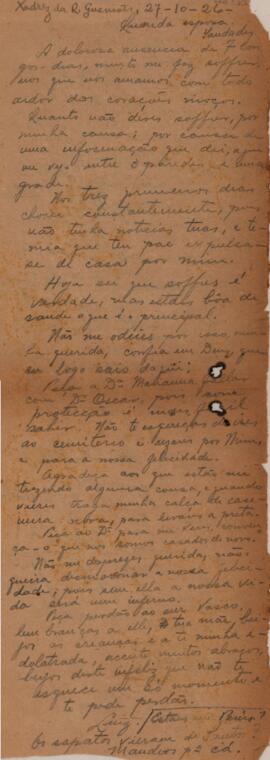 Xadrez da R. Gusmões, 27-10-26-
Querida esposa.
Saudades
A dolorosa ausencia de 7 lon-
gos dias, muito me faz soffrer,
nós que nos amamos com todo
ardor dos corações moços.
Quanto não deves soffrer, por
minha causa; por causa de
uma informação que dei, aqui
me vejo entre 4 paredes e uma
grade.
Nos tres primeiros dias
chorei constantemente, pois
não tinha noticias tuas, e te-
mia que teu pae expulsas-
se de casa por mim.
Hoje sei que soffres é
verdade, mas estás bôa de
saude o que é o principal.
Não me odeies por isso, mi-
nha querida, confia em Deus, que
eu logo saio daqui;
Peça a Dª falar
com Dr. Oscar, pois
protecção é mais facil
sahir. Não te esqueças de ires
ao cemiterio e rezares por Mim,
e para a nossa felicidade.
Agradeça aos que estão me
trazendo alguma cousa, e quando
vieres traga minha calça de case-
mira nova, para levares a preta.
Peça ao Dr. para me ver,
que nós somos casados de novo.
Não me desprezes, querida, não
queira desmoronar a nossa felici-
dade; pois sem ella a nossa vi-
da será um inferno.
Peça perdão ao seu Vasco,
lembranças a elle, á tua mãe, bei-
jos as creanças e a ti minha i-
dolatrada, acceite muitos abraços,
beijos deste infeliz que não te
esquece um só momento e
te pede perdão.
Os sapatos vieram de Santos?
Mandeos p.ª cá.